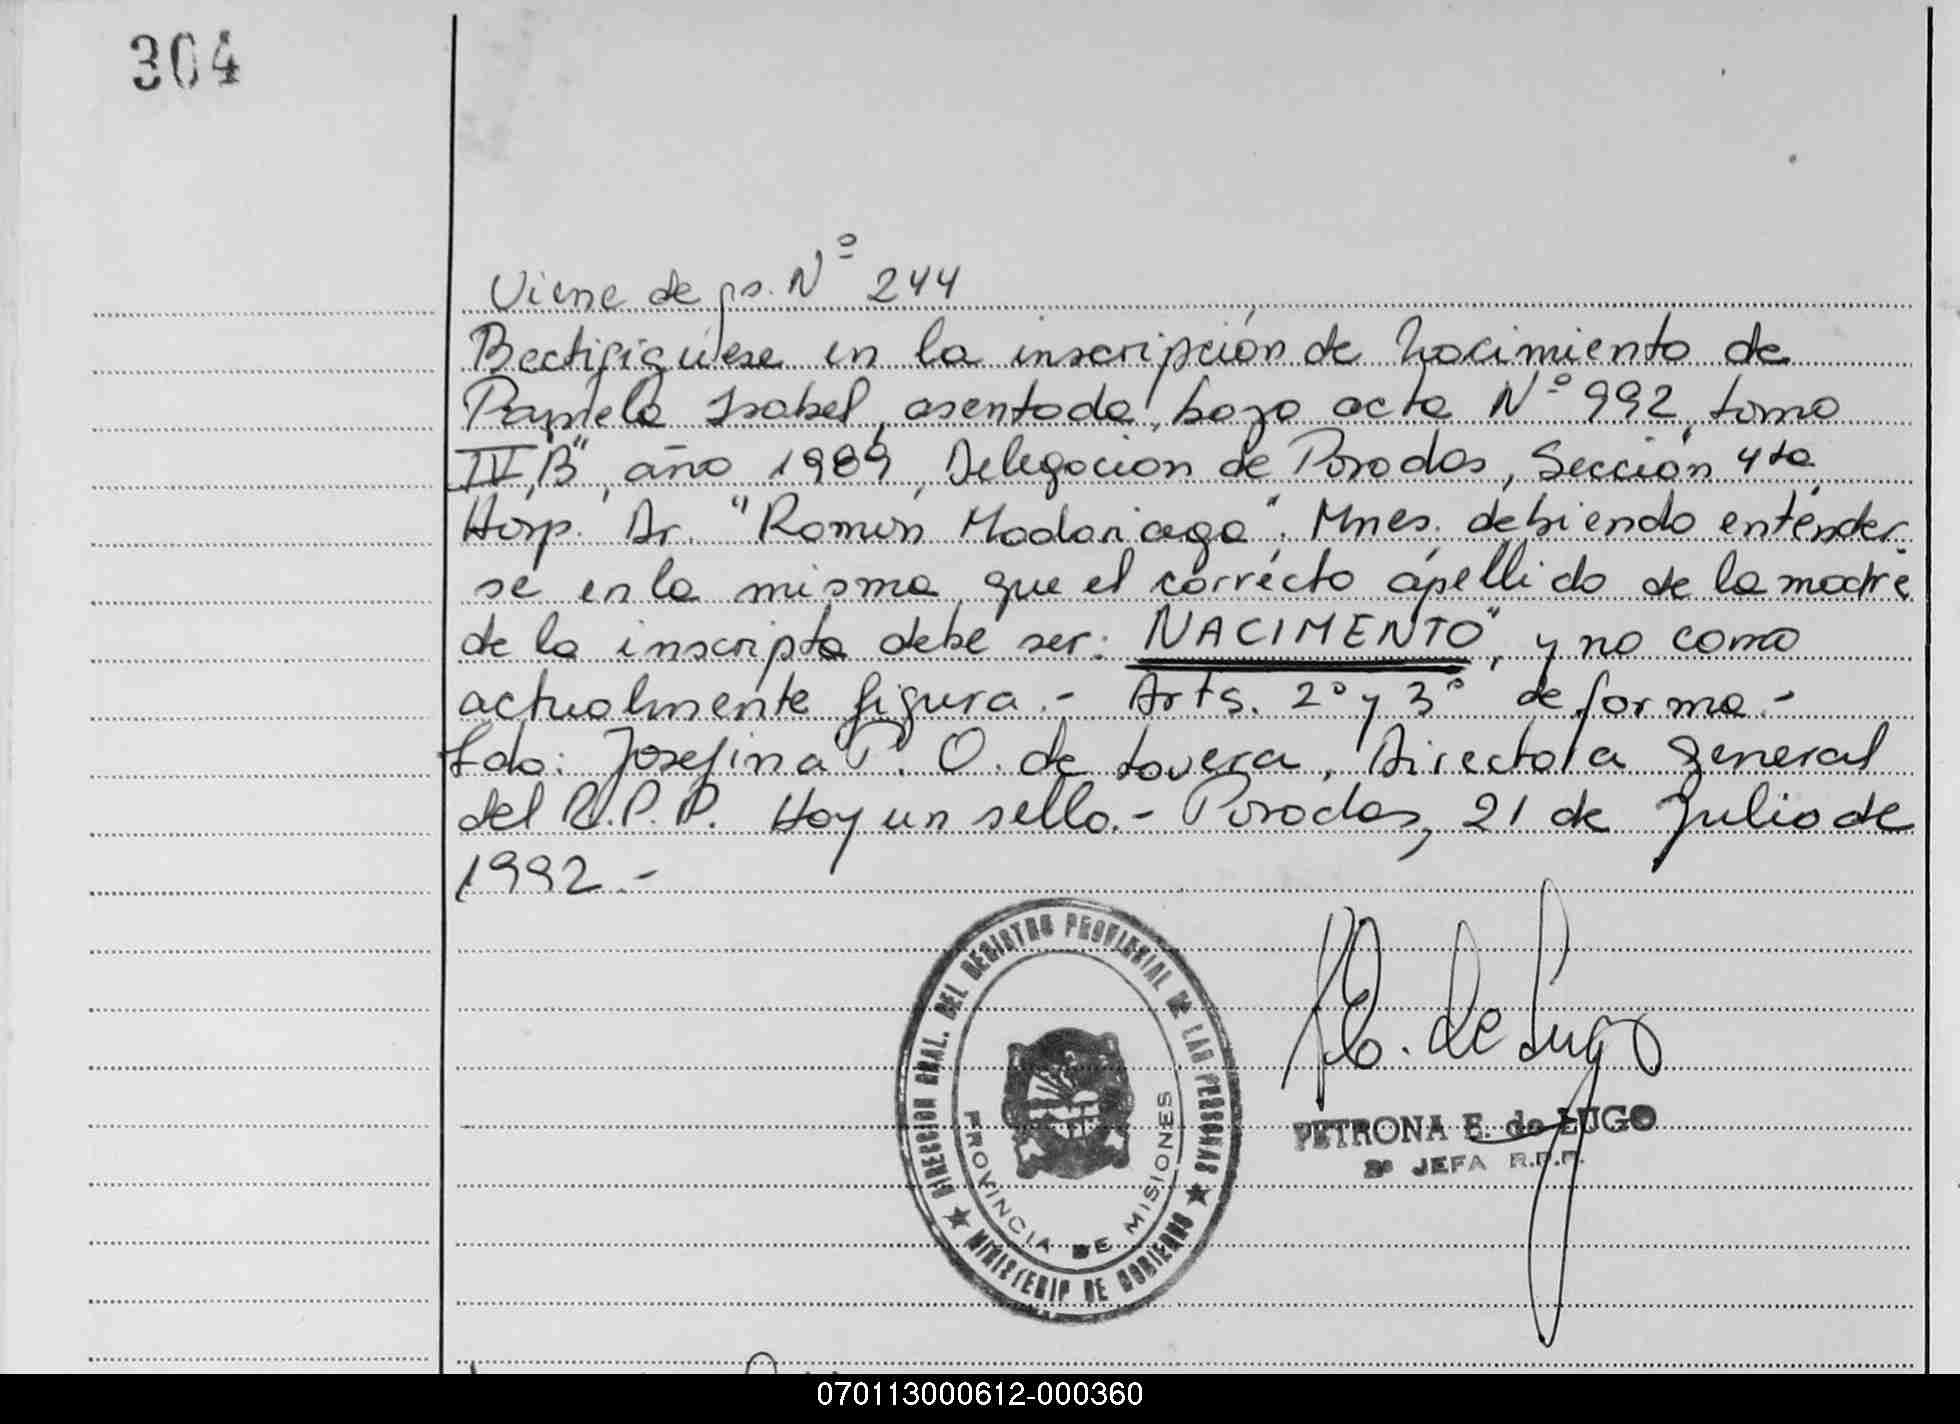 304
Viene de fs. Nº 244
Rectifiquese en la inscripción de Nacimiento de
Pamela Isabel, asentada bajo acta Nº 992, tomo
IV "B", año 1989, Delegacion de Posadas, Sección 4ta
Hosp. Dr. "Ramón Madariaga", Mnes. debiendo entender-
se en la misma que el correcto apellido de la madre
de la inscripta debe ser: NACIMENTO", y no como
actualmente figura.- Arts. 2º y 3º de forma.-
Fdo: Josefina P. O. de Lovera, Directora General
del R.P.P. Hay un sello.- Posadas, 21 de Julio de
1992.-
DIRECCION GRAL. DEL REGISTRO PROVINCIAL DE LAS PERSONAS
PROVINCIA DE MISIONES
MINISTERIO DE GOBIERNO
de Lugo
PETRONA E. de LUGO
2º JEFA R.P.P.
070113000612-000360